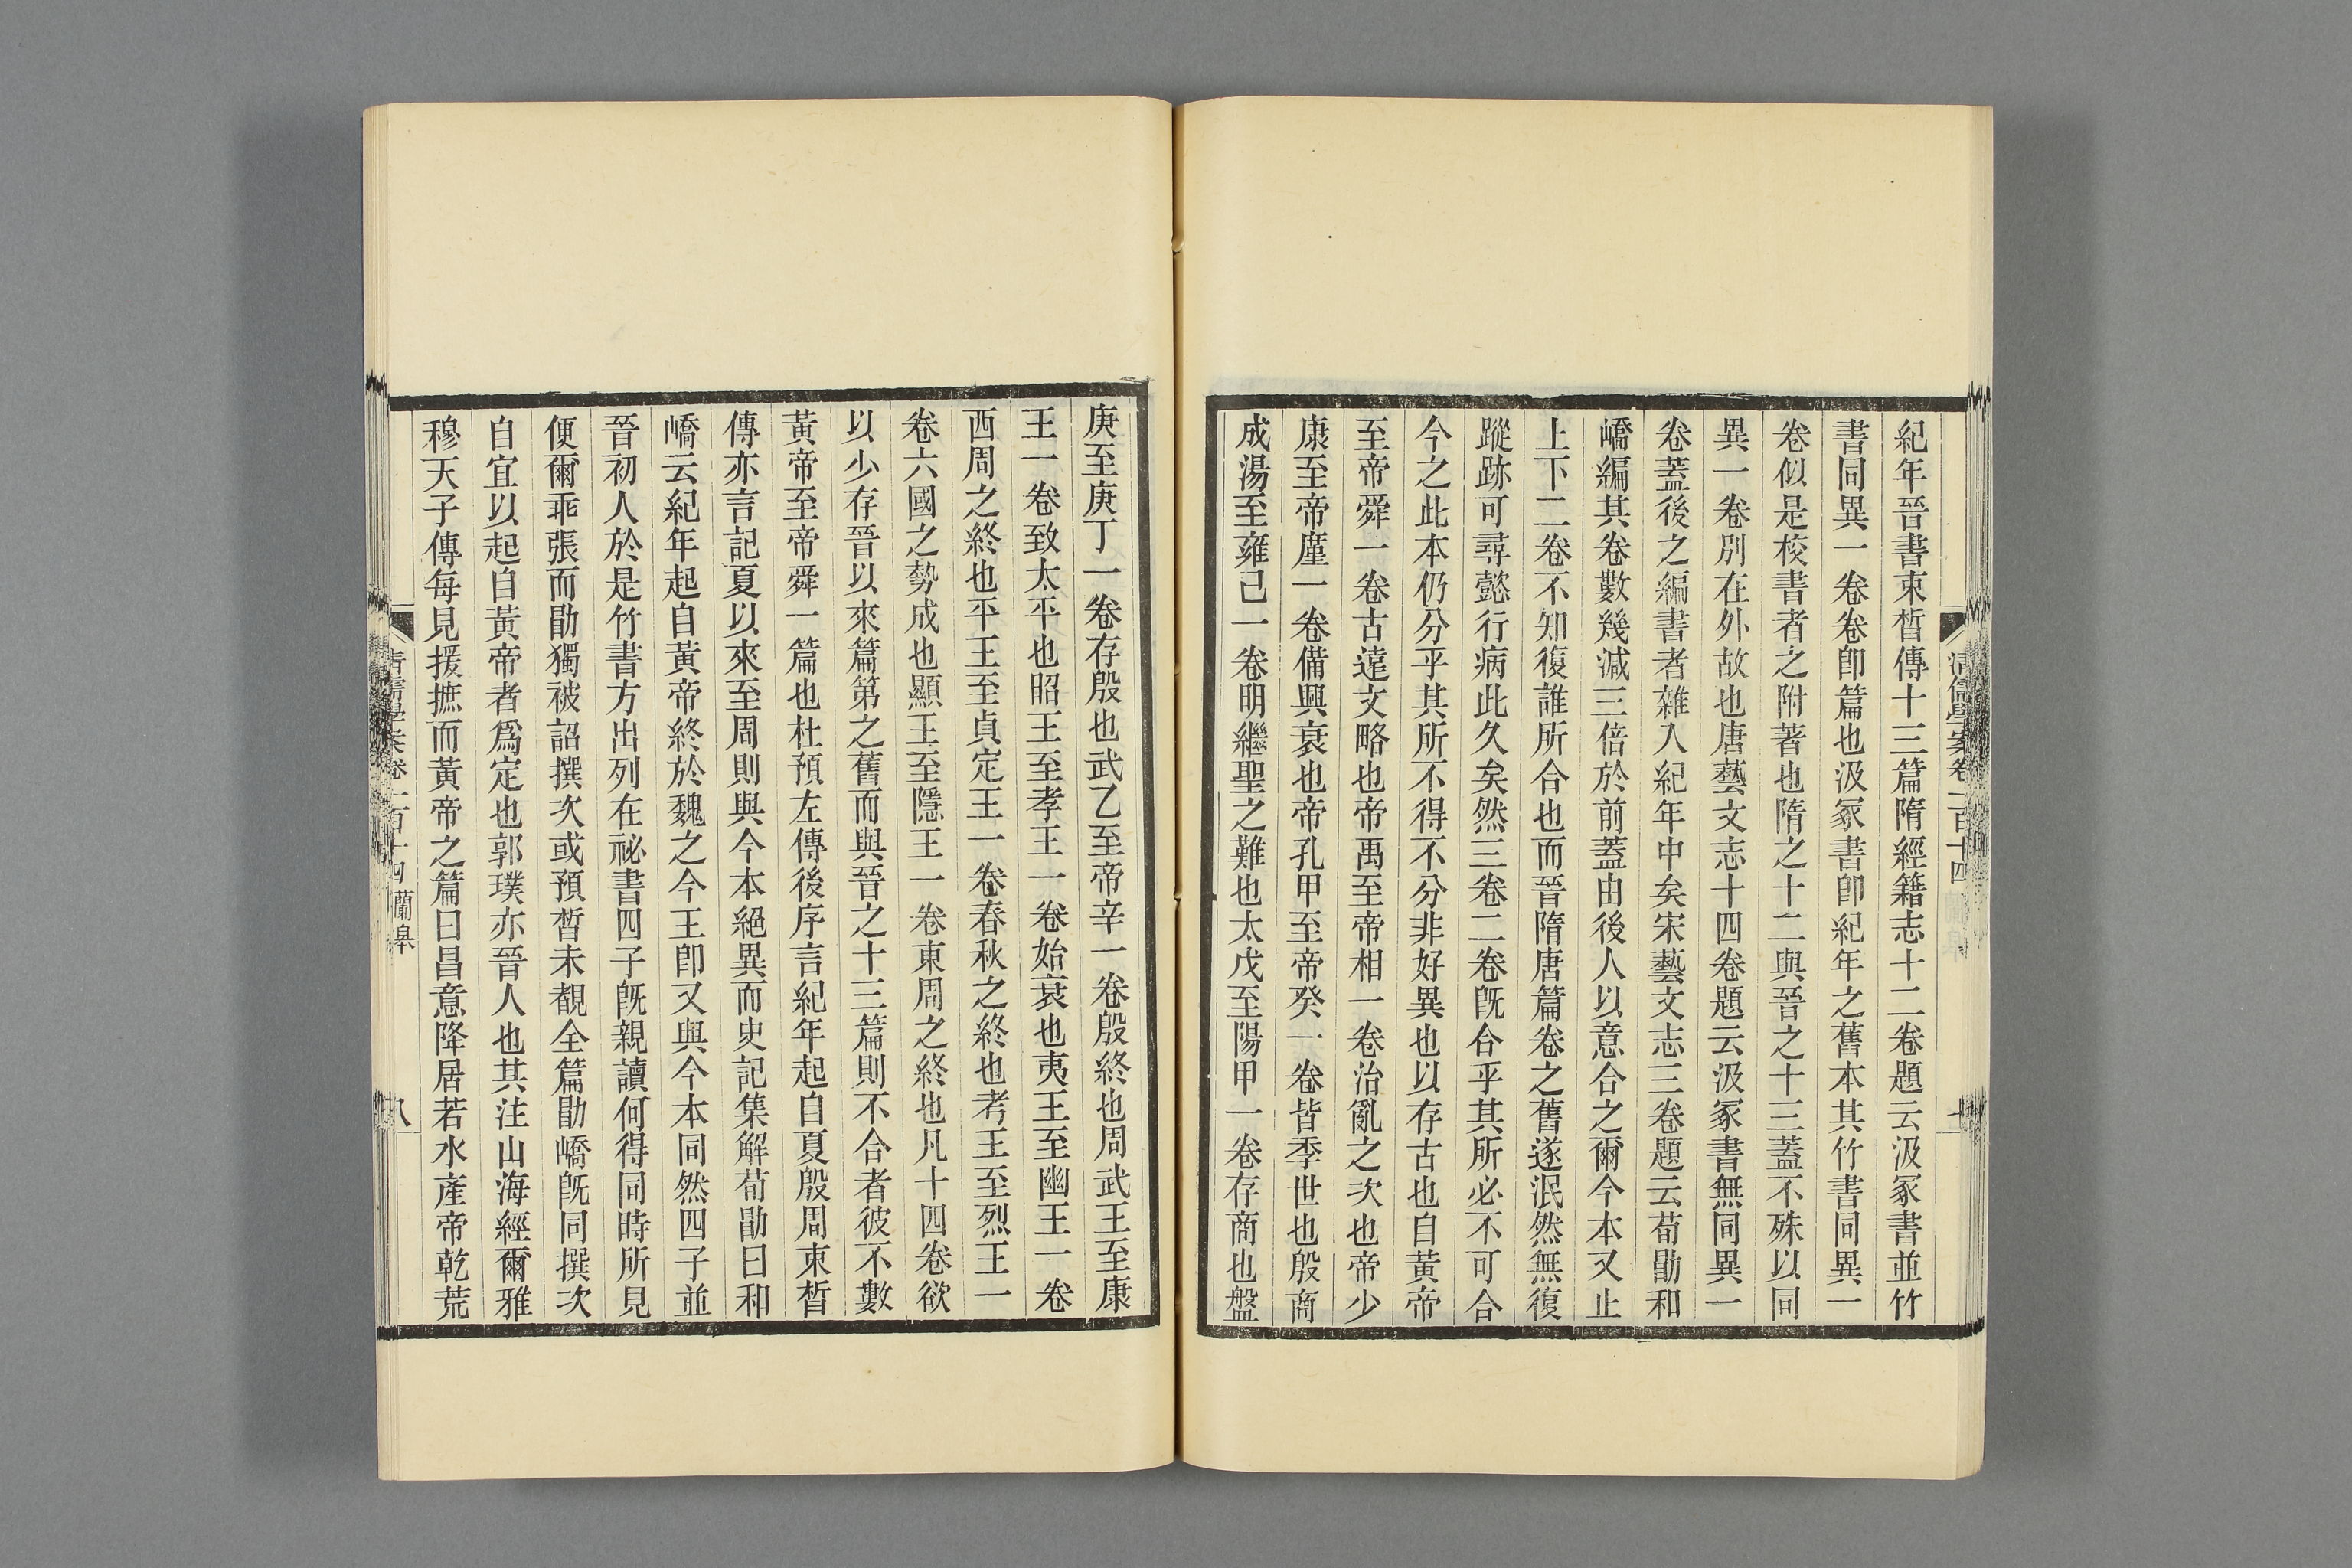 紀年晉書束晳傳十三篇隋經籍志十二卷題云汲冢書並竹
書同異一卷卷卽篇也汲冢書卽紀年之舊本其竹書同異一
卷似是校書者之附著也隋之十二與晉之十三蓋不殊以同
異一卷別在外故也唐藝文志十四卷題云汲冢書無同異一
卷蓋後之編書者雜入紀年中矣宋藝文志三卷題云荀勖和
嶠編其卷數幾減三倍於前蓋由後人以意合之爾今本又止
上下二卷不知復誰所合也而晉隋唐篇卷之舊遂泯然無復
蹤跡可尋懿行病此久矣然三卷二卷旣合乎其所必不可合
今之此本仍分乎其所不得不分非好異也以存古也自黃帝
至帝舜一卷古遠文略也帝禹至帝相一卷治亂之次也帝少
康至帝廑一卷備興衰也帝孔甲至帝癸一卷皆季世也殷商
成湯至雍己一卷明繼聖之難也太戊至陽甲一卷存商也盤
庚至庚丁一卷存殷也武乙至帝辛一卷殷終也周武王至康
王一卷致太平也昭王至孝王一卷始衰也夷王至幽王一卷
西周之終也平王至貞定王一卷春秋之終也考王至烈王一
卷六國之勢成也顯王至隱王一卷東周之終也凡十四卷欲
以少存晉以來篇第之舊而與晉之十三篇則不合者彼不數
黃帝至帝舜一篇也杜預左傳後序言紀年起自夏殷周束晳
傳亦言記夏以來至周則與今本絕異而史記集解荀勖曰和
嶠云紀年起自黃帝終於魏之今王卽又與今本同然四子並
晉初人於是竹書方出列在祕書四子旣親讀何得同時所見
便爾乖張而勖獨被詔撰次或預晳未覩全篇勖嶠旣同撰次
自宜以起自黃帝者爲定也郭璞亦晉人也其注山海經爾雅
穆天子傳每見援摭而黃帝之篇曰昌意降居若水產帝乾荒
清儒學案卷二百十四
蘭皋
八